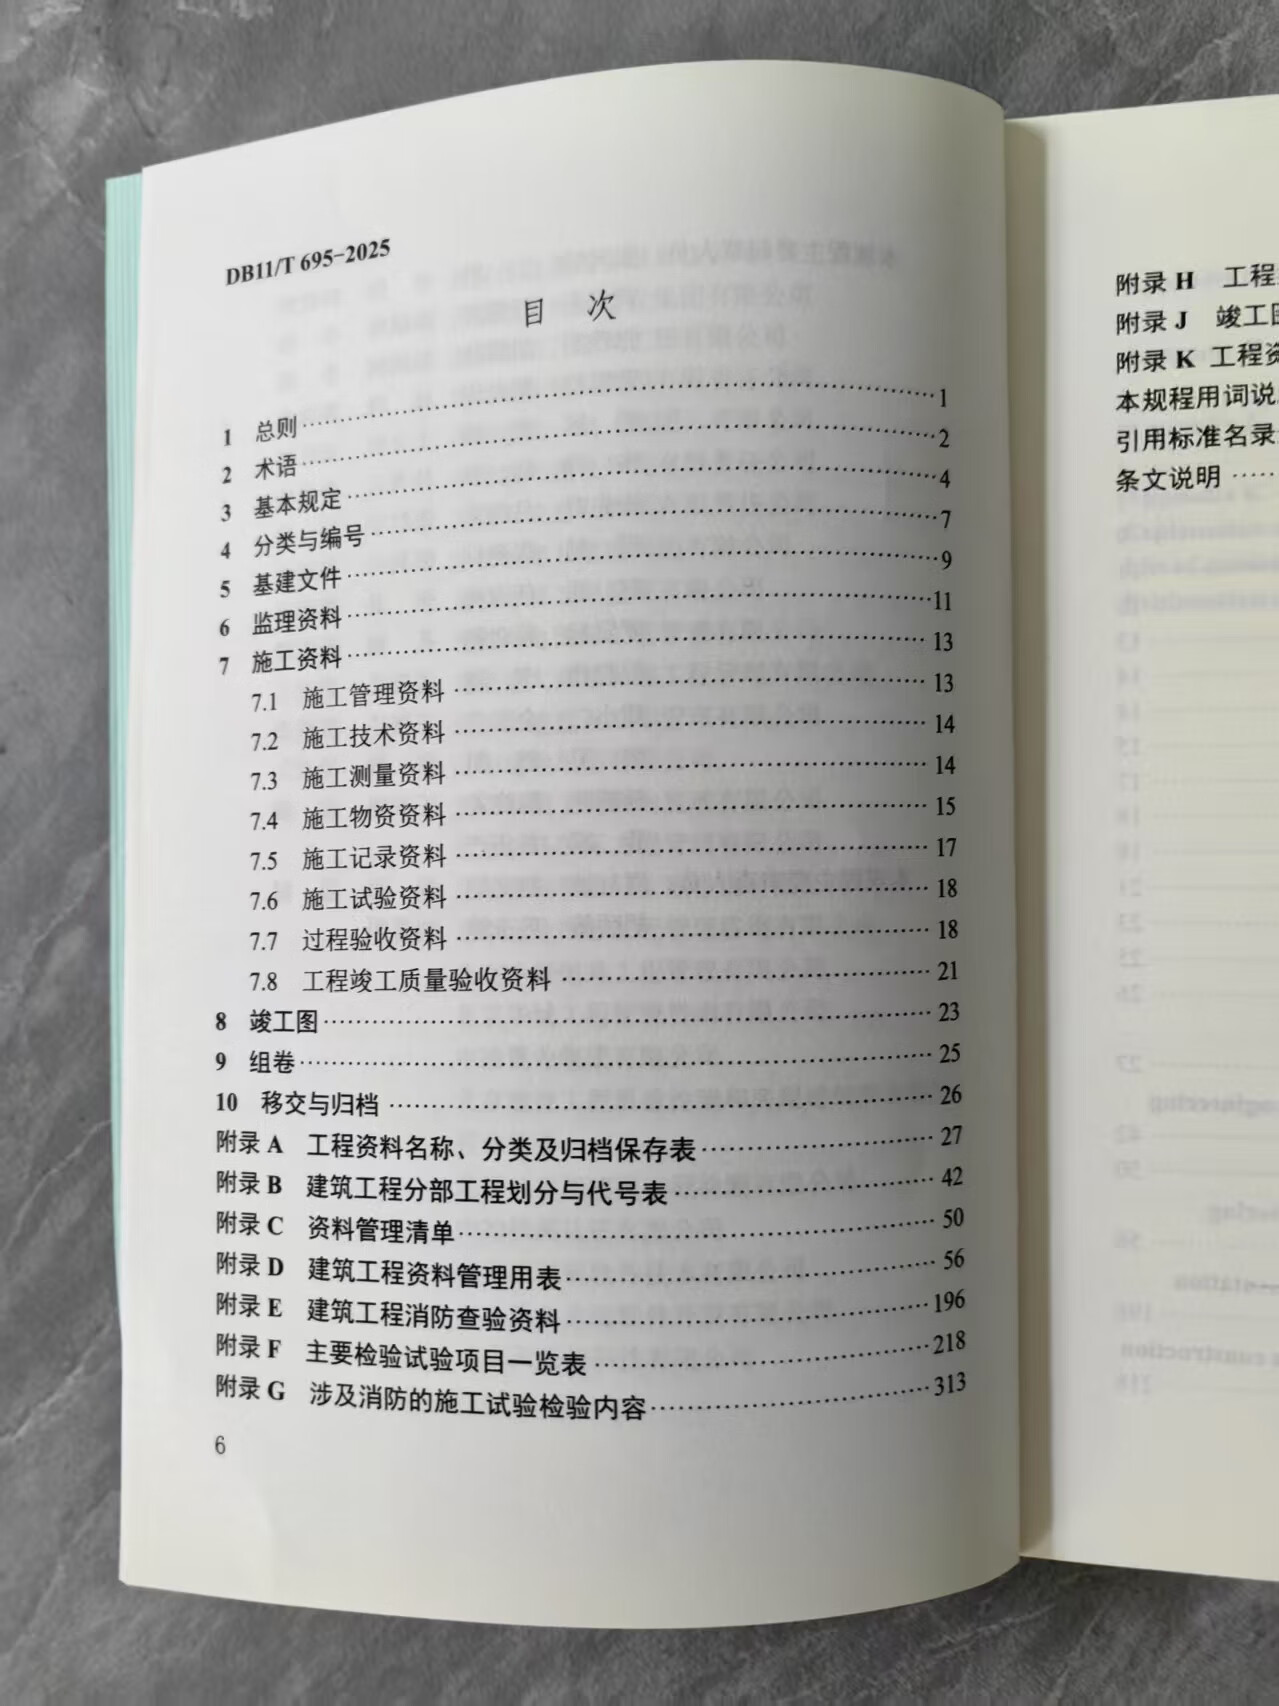 DB11/T 695-2025
目 次
1 总则 1
2 术语 2
3 基本规定 4
4 分类与编号 7
5 基建文件 9
6 监理资料 11
7 施工资料 13
7.1 施工管理资料 13
7.2 施工技术资料 14
7.3 施工测量资料 14
7.4 施工物资资料 15
7.5 施工记录资料 17
7.6 施工试验资料 18
7.7 过程验收资料 18
7.8 工程竣工质量验收资料 21
8 竣工图 23
9 组卷 25
10 移交与归档 26
附录 A 工程资料名称、分类及归档保存表 27
附录 B 建筑工程分部工程划分与代号表 42
附录 C 资料管理清单 50
附录 D 建筑工程资料管理用表 56
附录 E 建筑工程消防查验资料 196
附录 F 主要检验试验项目一览表 218
附录 G 涉及消防的施工试验检验内容 313
6
附录 H 工程
附录 J 竣工
附录 K 工程
本规程用词说
引用标准名录
条文说明